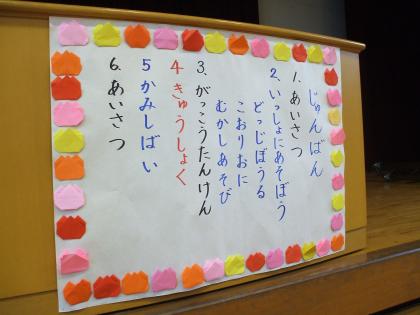 じゅんばん
1、あいさつ
2、いっしょにあそぼう
どっじぼうる
こおりおに
むかしあそび
3、がっこうたんけん
4 きゅうしょく
5 かみしばい
6、あいさつ